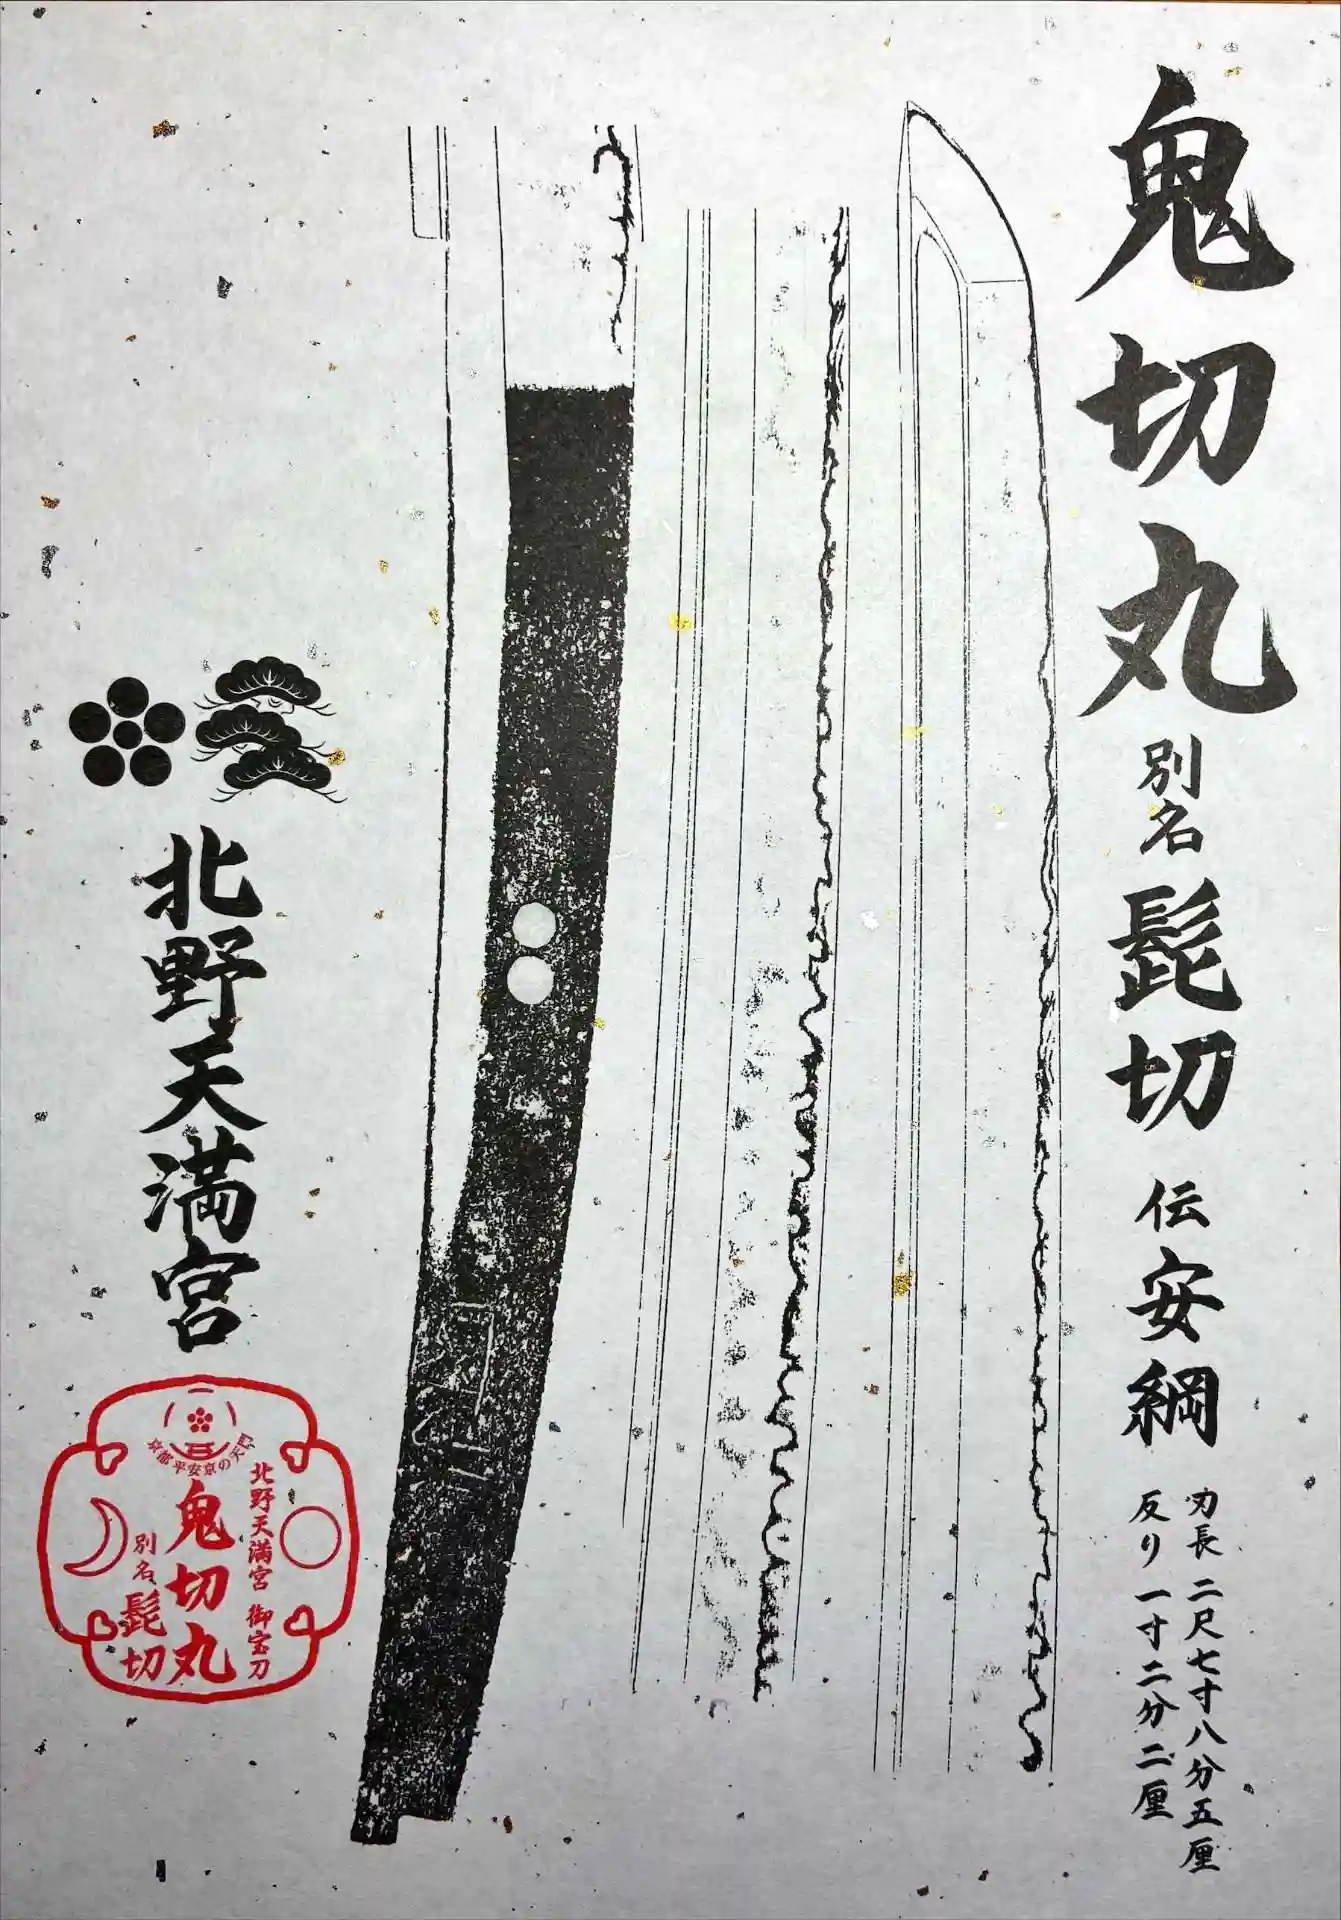 鬼切丸 別名 髭切 伝 安綱
刃長 二尺七寸八分五厘
反り 一寸二分二厘
北野天満宮
京都平安京の天門
北野天満宮 御宝刀
鬼切丸
別名 髭切